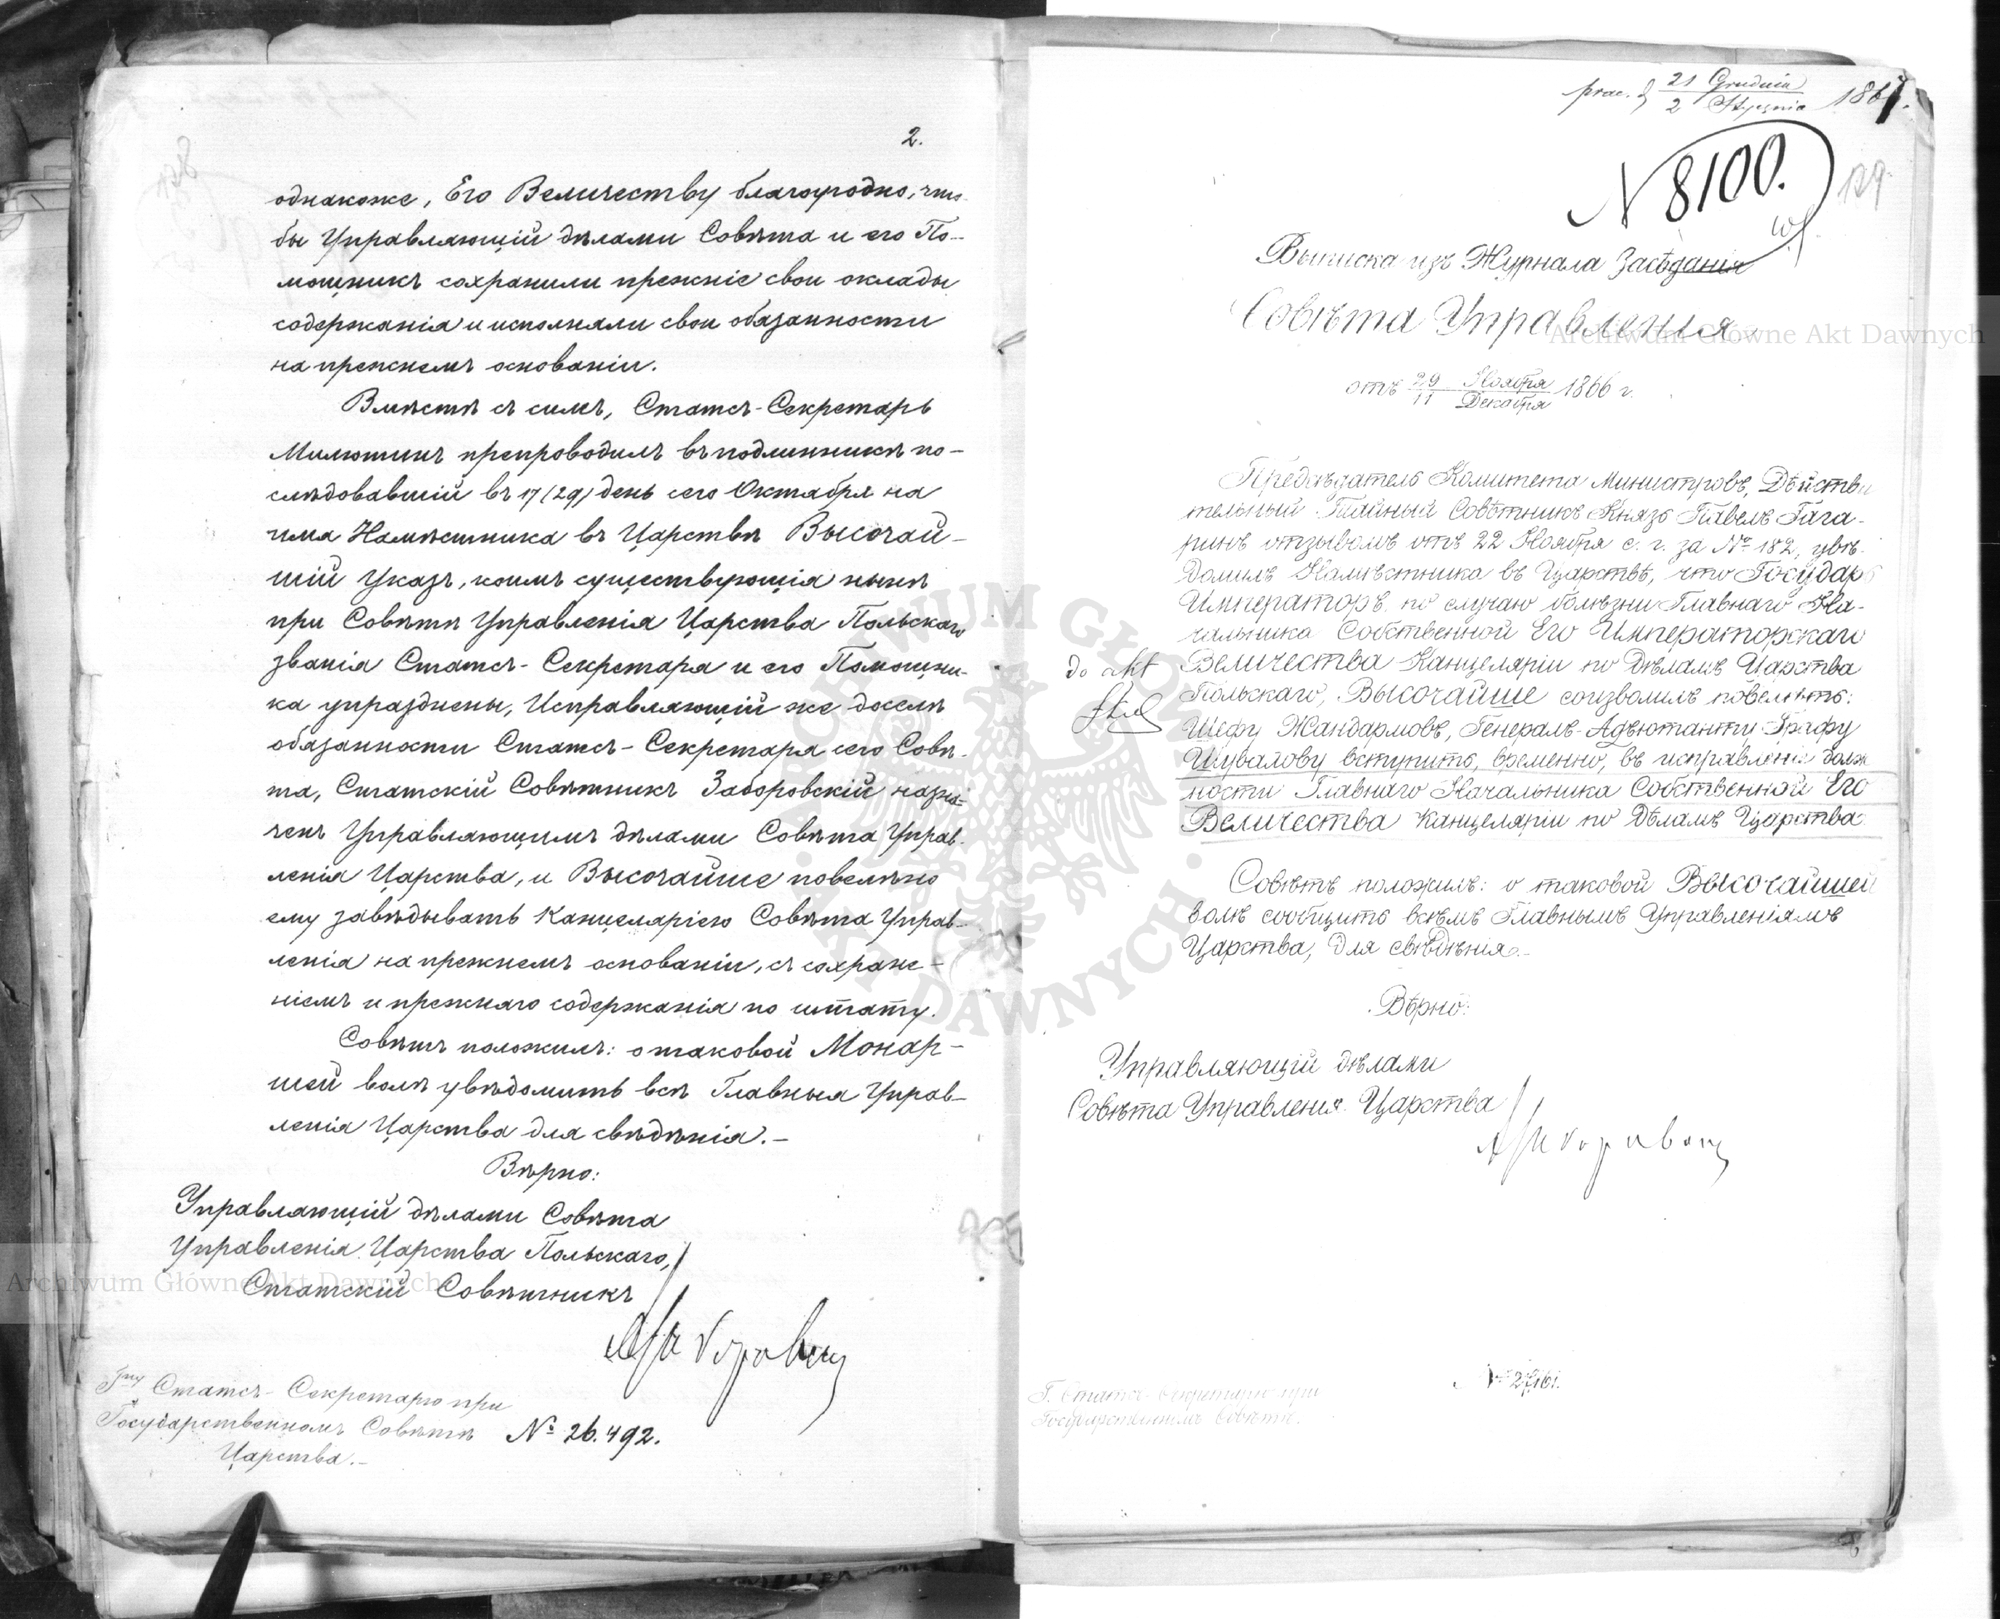 2.
однакоже, Его Величеству благоугодно, что-
бы Управляющій дѣлами Совѣта и его По-
мощникъ сохранили прежніе свои оклады
содержанія и исполняли свои обязанности
на прежнемъ основаніи.
Вмѣстѣ съ симъ, Статсъ-Секретарь
Милютинъ препроводилъ въ подлинникѣ по-
слѣдовавшій въ 17 (29) день сего Октября на
имя Намѣстника въ Царствѣ Высочай-
шій Указъ, коимъ существующія нынѣ
при Совѣтѣ Управленія Царства Польскаго
званія Статсъ-Секретаря и его Помощни-
ка упразднены, Исправляющій же доселѣ
обязанности Статсъ-Секретаря сего Совѣ-
та, Статскій Совѣтникъ Заборовскій назна-
ченъ Управляющимъ дѣлами Совѣта Управ-
ленія Царства, и Высочайше повелѣно
ему завѣдывать Канцеляріею Совѣта Управ-
ленія на прежнемъ основаніи, съ сохране-
ніемъ и прежняго содержанія по штату.
Совѣтъ положилъ: о таковой Монар-
шей волѣ увѣдомить всѣ Главныя Управ-
ленія Царства для свѣдѣнія.-
Вѣрно:
Управляющій дѣлами Совѣта
Управленія Царства Польскаго,
Статскій Совѣтникъ
Гну Статсъ-Секретарю при
Государственномъ Совѣтѣ
Царства.-
№ 26.492.
21 Grudnia
2 Stycznia 1867.
N 8100.
129
Выписка изъ Журнала Засѣданія
Совѣта Управленія
отъ 29 Ноября
11 Декабря 1866 г.
Предсѣдатель Комитета Министровъ, Дѣйстви
тельный Тайный Совѣтникъ Князь Павелъ Гага-
ринъ отзывомъ отъ 22 Ноября с. г. за № 182, увѣ-
домилъ Намѣстника въ Царствѣ, что Государь
Императоръ, по случаю болѣзни Главнаго На-
чальника Собственной Его Императорскаго
Величества Канцеляріи по Дѣламъ Царства
Польскаго, Высочайше соизволилъ повелѣть:
Шефу Жандармовъ, Генералъ-Адъютанту Графу
Шувалову вступить, временно, въ исправленіе долж
ности Главнаго Начальника Собственной Его
Величества Канцеляріи по Дѣламъ Царства
do akt
Совѣтъ положилъ: о таковой Высочайшей
волѣ сообщить всѣмъ Главнымъ Управленіямъ
Царства, для свѣдѣнія.-
Вѣрно:
Управляющій дѣлами
Совѣта Управленія Царства
Г. Статсъ-Секретарю при
Государственномъ Совѣтѣ.
№ 27,161.
Archiwum Główne Akt Dawnych
Archiwum Główne Akt Dawnych
ARCHIWUM GŁÓWNE
AKT DAWNYCH